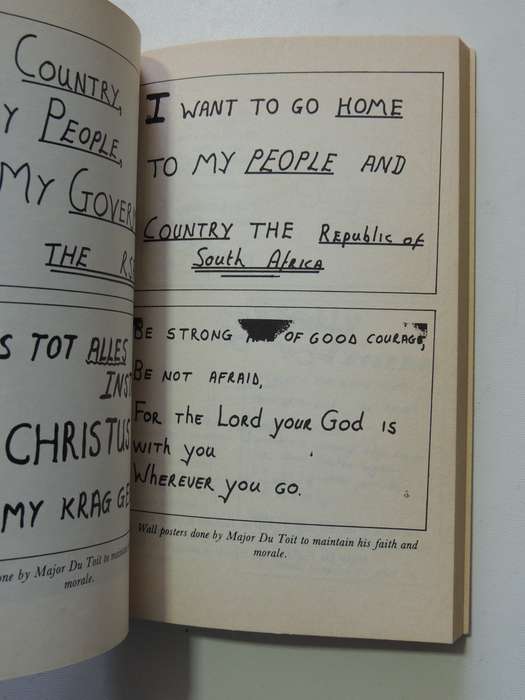 COUNTRY,
Y PEOPLE,
MY GOVER
THE RS
S TOT ALLES
INST
CHRISTUS
MY KRAG GE
one by Major Du Toit to
morale.
I WANT TO GO HOME
TO MY PEOPLE AND
COUNTRY THE Republic of
South Africa
BE STRONG OF GOOD COURAGE,
BE NOT AFRAID,
FOR THE LORD your God is
with you
Wherever you GO.
Wall posters done by Major Du Toit to maintain his faith and
morale.